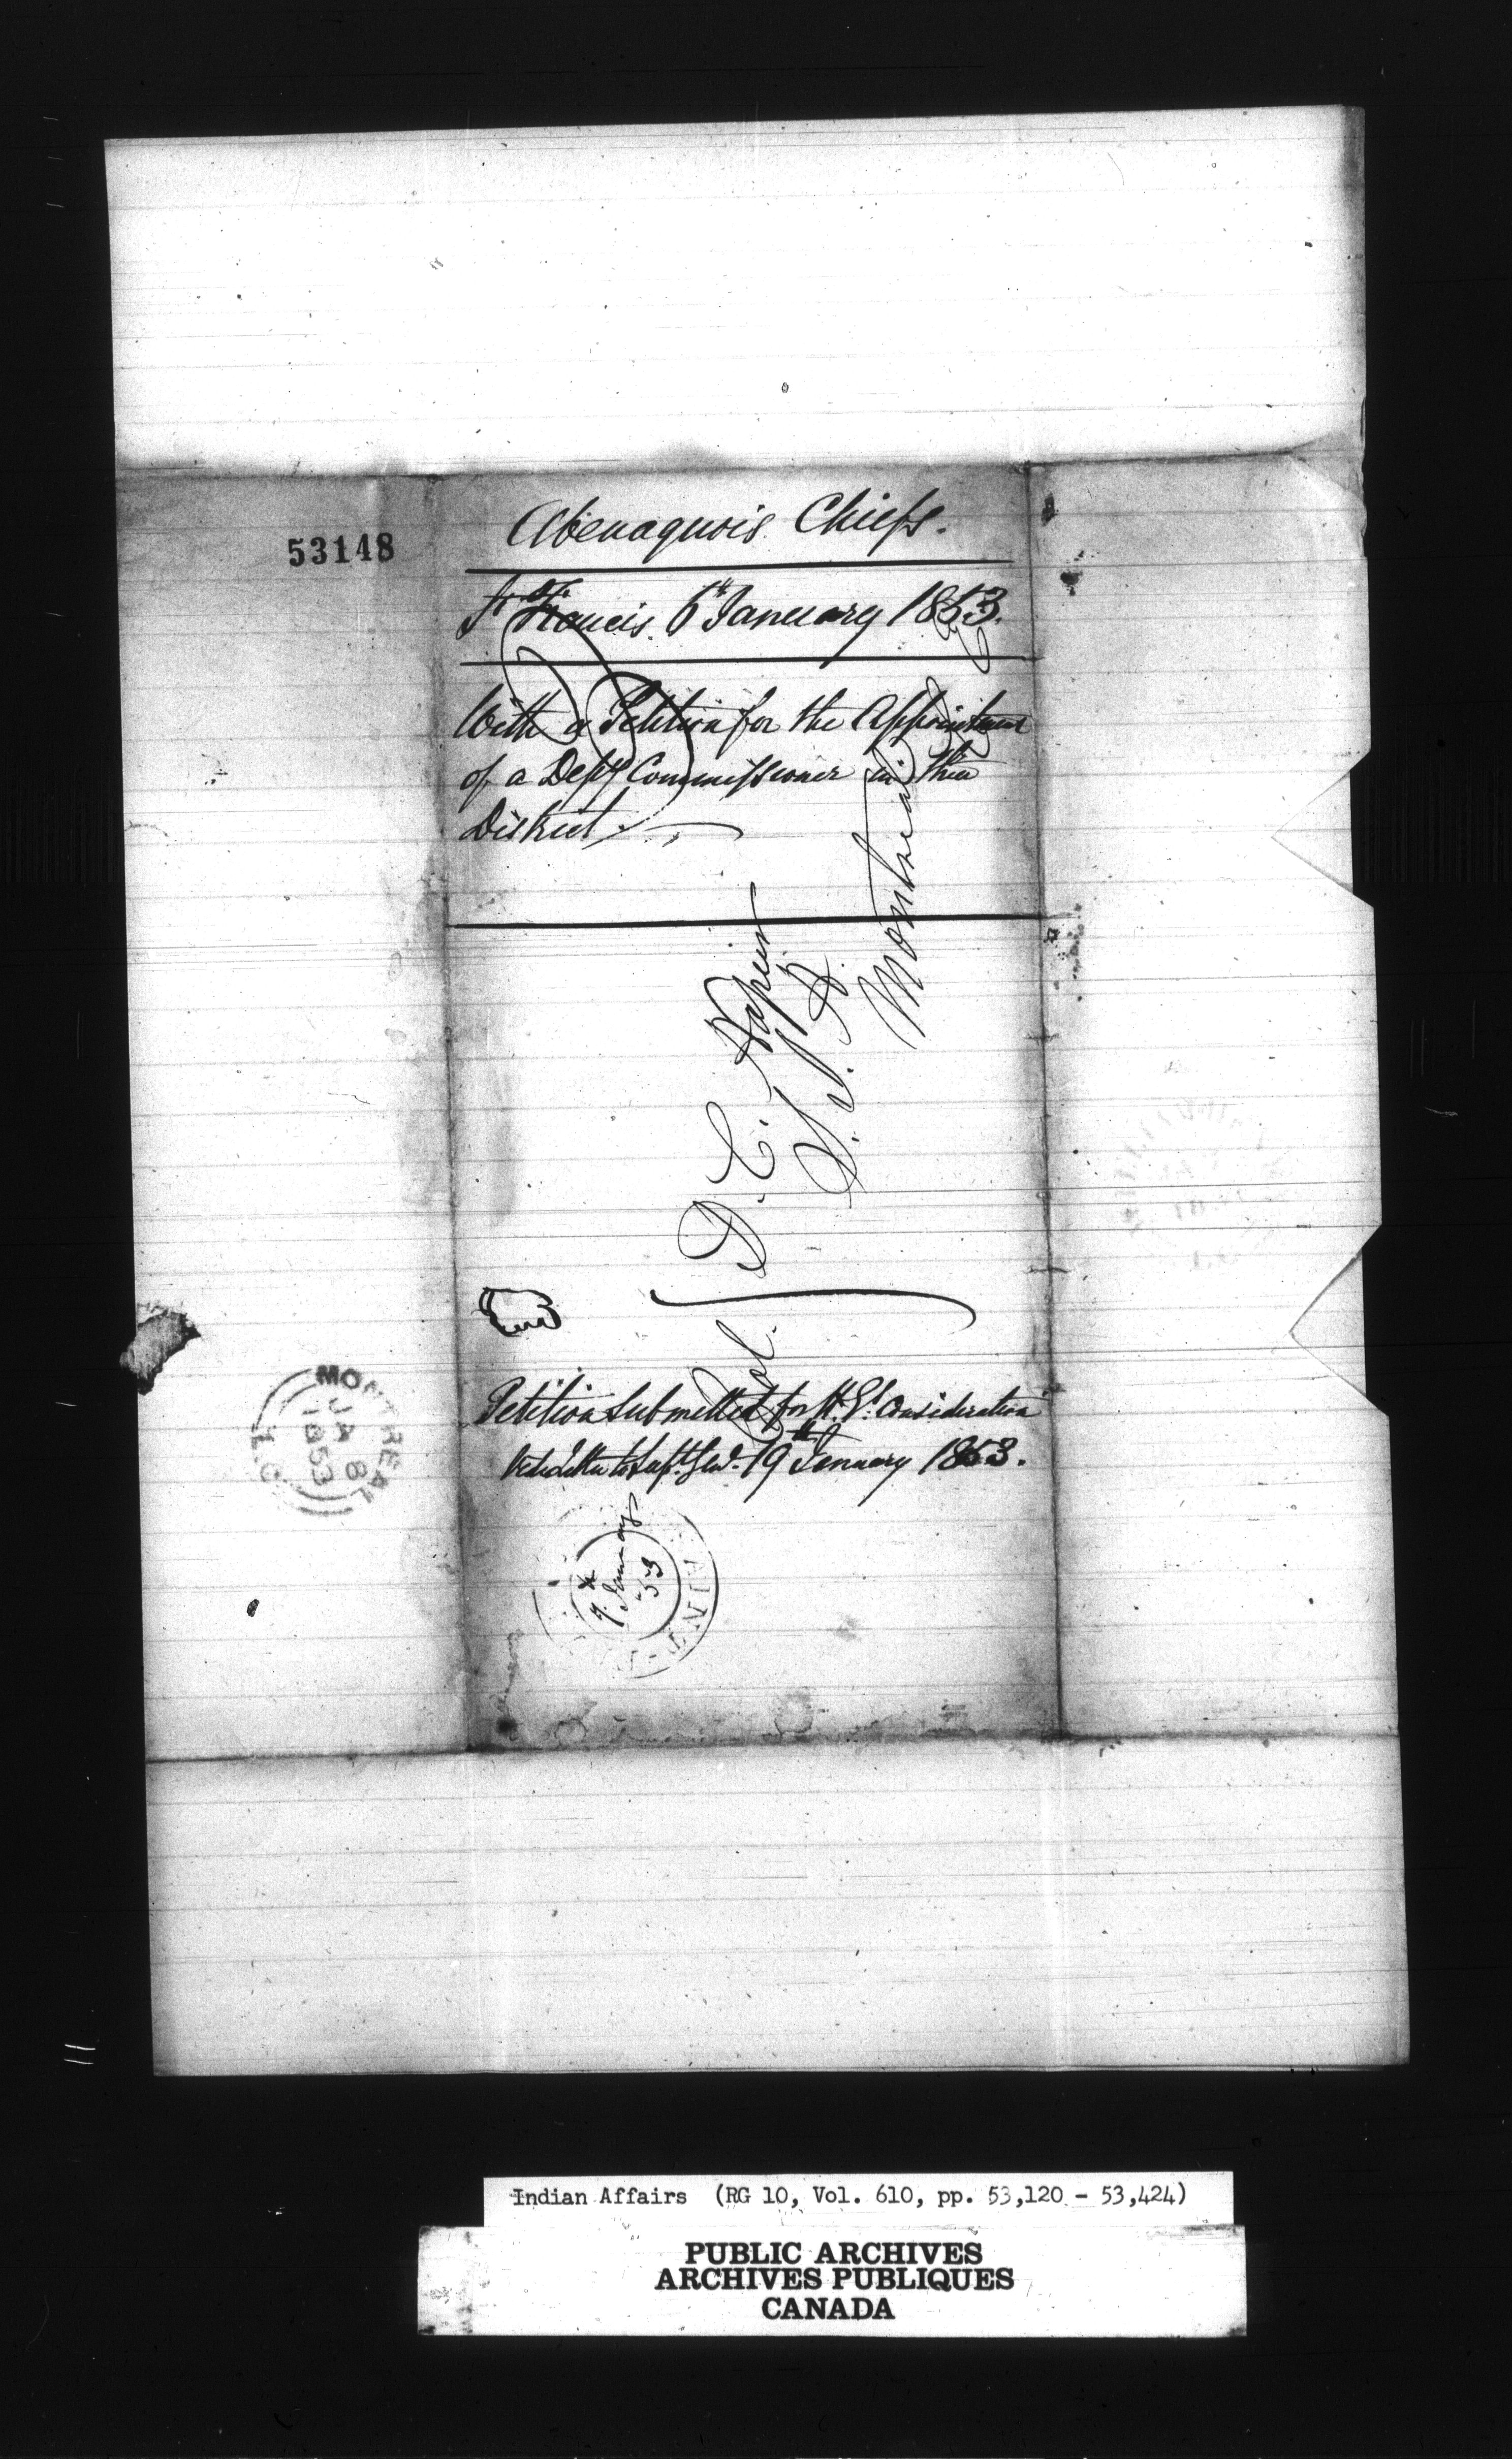 53148
Abenaquois Chiefs.
St Francis. 6th January 1853.
With a Petition for the Appointment
of a Depy Commissioner in their
District
Col. D. C. Napier
S. I. A.
Montreal
Petition submitted for H. E's. Consideration
Vide Letter to Supt. Genl. 19th January 1853.
MONTREAL
JA 8
1853
L.C
7th
January
53
Indian Affairs (RG 10, Vol. 610, pp. 53,120 - 53,424)
PUBLIC ARCHIVES
ARCHIVES PUBLIQUES
CANADA